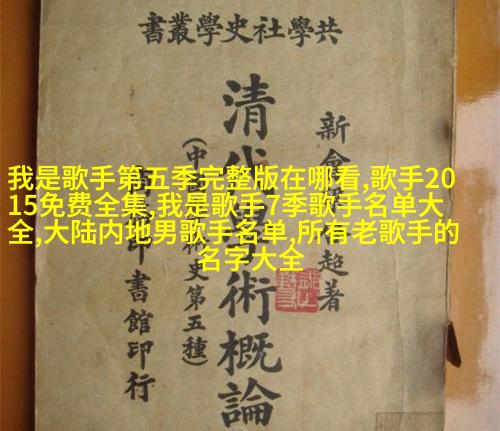 共學社史學叢書
新會超著
清代術概論
(中史第五種)
印書館印行
我是歌手第五季完整版在哪看,歌手20
15免费全集,我是歌手7季歌手名单大
全,大陆内地男歌手名单,所有老歌手的
名字大全